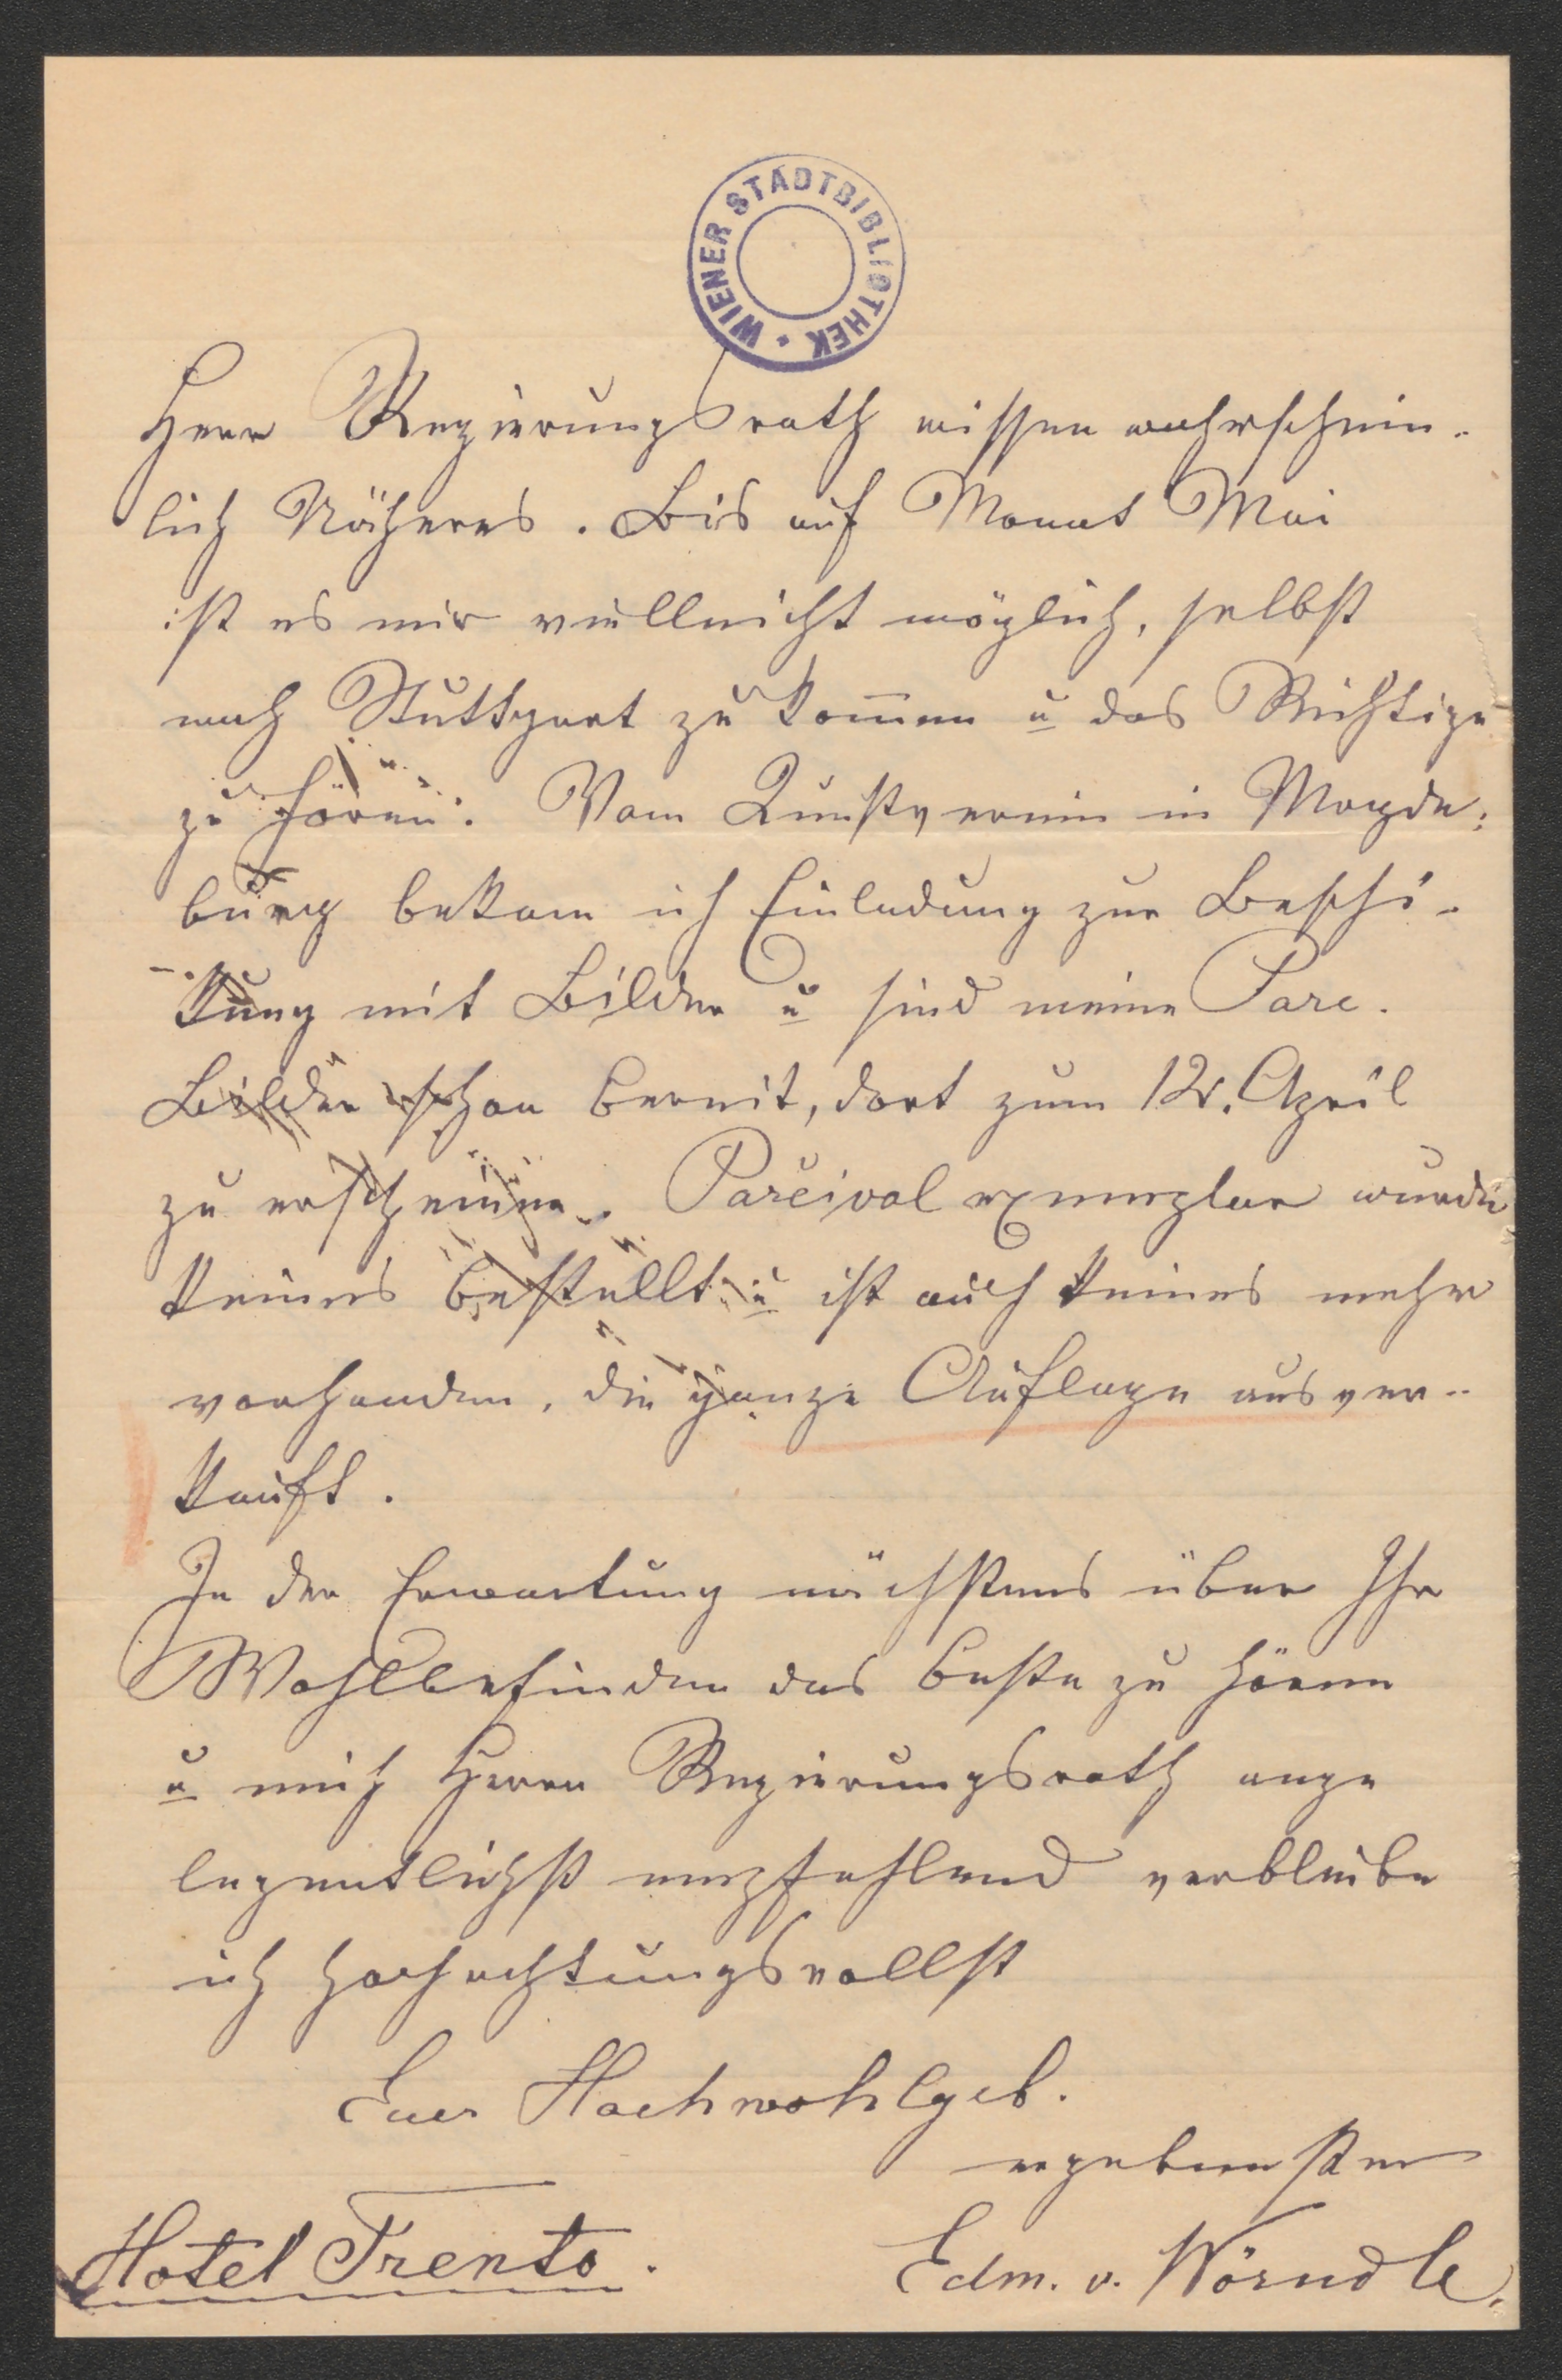 WIENER STADTBIBLIOTHEK
Herr Regierungsrath wissen wahrschein-
lich Näheres. Bis auf Monat Mai
ist es mir vielleicht möglich, selbst
nach Stuttgart zu kom̄en u das Richtige
zu hören. Vom Kunstverein in Magde:
burg bekam ich Einladung zur Beschi-
kung mit Bilder u sind meine Parc.
Bilder schon bereit, dort zum 12. April
zu erscheinen. Parcival exemplar wurde
keines bestellt u ist auch keines mehr
vorhanden, die ganze Auflage ausver-
kauft.
In der Erwartung nächstens über Ihr
Wohlbefinden das beste zu hören
u mich Herrn Regierungsrath ange
legentlichst empfehlend verbleibe
ich hochachtungsvollst
Euer Hochwohlgeb.
ergebenster
Hotel Trento. Edm. v. Wörndle.